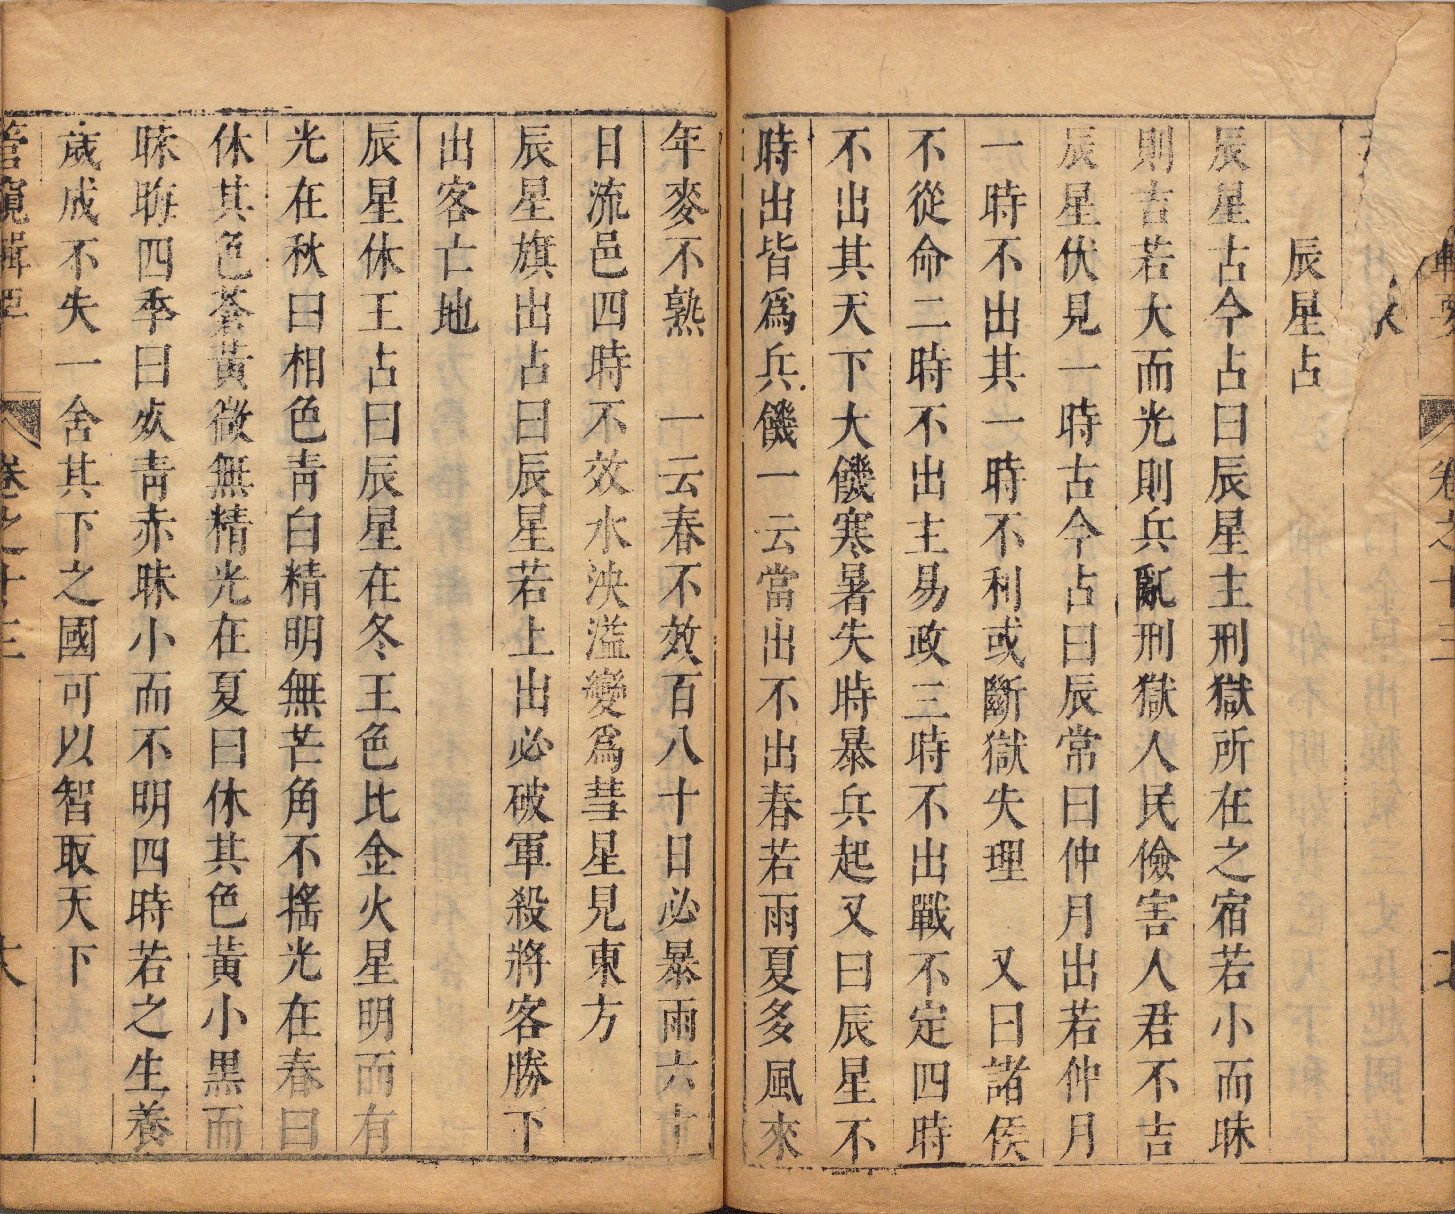 卷之十三
辰星占
辰星古今占曰辰星主刑獄所在之宿若小而昧
則吉若大而光則兵亂刑獄人民儉害人君不吉
辰星伏見一時古今占曰辰常曰仲月出若仲月
一時不出其一時不利或斷獄失理　又曰諸侯
不從命二時不出主易政三時不出戰不定四時
不出其天下大饑寒暑失時暴兵起又曰辰星不
時出皆爲兵饑一云當出不出春若雨夏多風來
年麥不熟　一云春不效百八十日必暴雨六十
日流邑四時不效水泱溢變爲彗星見東方
辰星旗出占曰辰星若上出必破軍殺將客勝下
出客亡地
辰星休王占曰辰星在冬王色比金火星明而有
光在秋曰相色青白精明無芒角不搖光在春曰
休其色蒼黃微無精光在夏曰休其色黃小黑而
昧晦四季曰死青赤昧小而不明四時若之生養
歲成不失一舍其下之國可以智取天下
管窺輯要　卷之十三